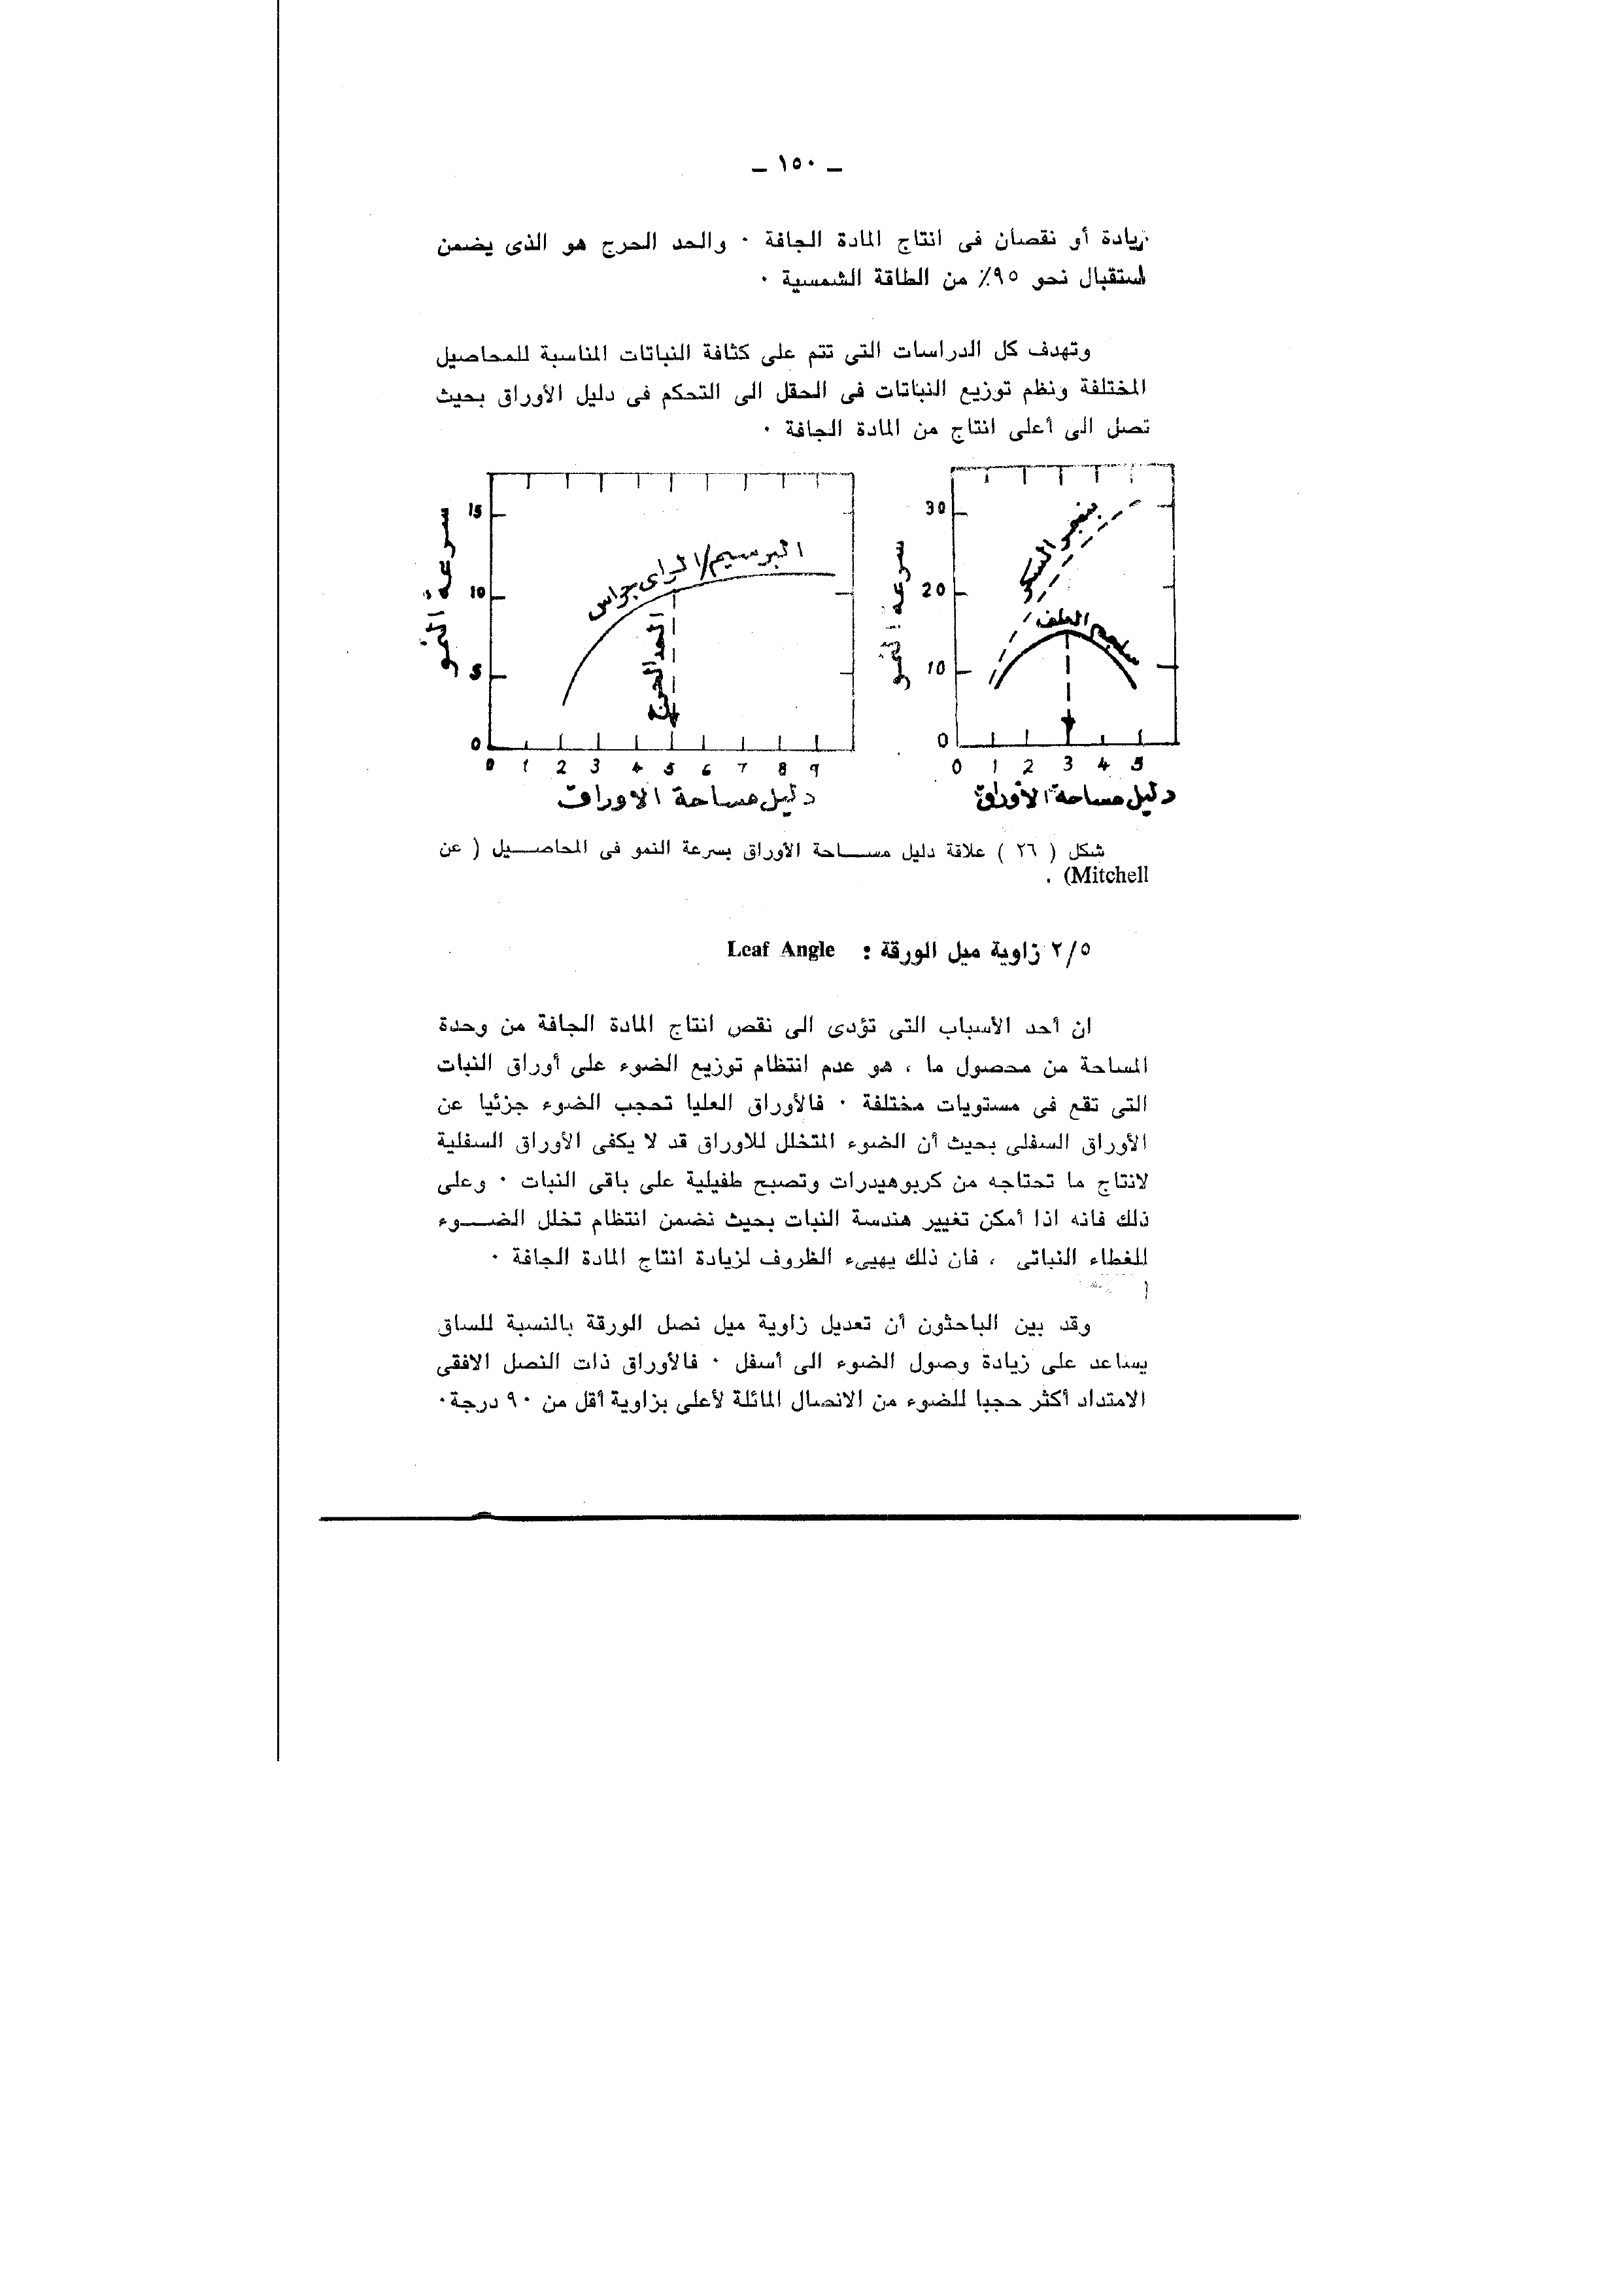 ـ ١٥٠ ـ
زيادة أو نقصان فى انتاج المادة الجافة ٠ والحد الحرج هو الذى يضمن
استقبال نحو ٩٥٪ من الطاقة الشمسية ٠
وتهدف كل الدراسات التى تتم على كثافة النباتات المناسبة للمحاصيل
المختلفة ونظم توزيع النباتات فى الحقل الى التحكم فى دليل الأوراق بحيث
تصل الى أعلى انتاج من المادة الجافة ٠
30
20
10
0
0 1 2 3 4 5
سرعة النمو
بنجر السكر
العلف
دليل مساحة الأوراق
15
10
5
0
0 1 2 3 4 5 6 7 8 9
سرعة النمو
البرسيم/الراى جراس
الحد الحرج
دليل مساحة الاوراق
شكل ( ٢٦ ) علاقة دليل مســاحة الأوراق بسرعة النمو فى المحاصـــيل ( عن
Mitchell) .
٢/٥ زاوية ميل الورقة : Leaf Angle
ان أحد الأسباب التى تؤدى الى نقص انتاج المادة الجافة من وحدة
المساحة من محصول ما ، هو عدم انتظام توزيع الضوء على أوراق النبات
التى تقع فى مستويات مختلفة ٠ فالأوراق العليا تحجب الضوء جزئيا عن
الأوراق السفلى بحيث أن الضوء المتخلل للاوراق قد لا يكفى الأوراق السفلية
لانتاج ما تحتاجه من كربوهيدرات وتصبح طفيلية على باقى النبات ٠ وعلى
ذلك فانه اذا أمكن تغيير هندسة النبات بحيث نضمن انتظام تخلل الضـــوء
للغطاء النباتى ، فان ذلك يهيىء الظروف لزيادة انتاج المادة الجافة ٠
وقد بين الباحثون أن تعديل زاوية ميل نصل الورقة بالنسبة للساق
يساعد على زيادة وصول الضوء الى أسفل ٠ فالأوراق ذات النصل الافقى
الامتداد أكثر حجبا للضوء من الانصال المائلة لأعلى بزاوية أقل من ٩٠ درجة٠